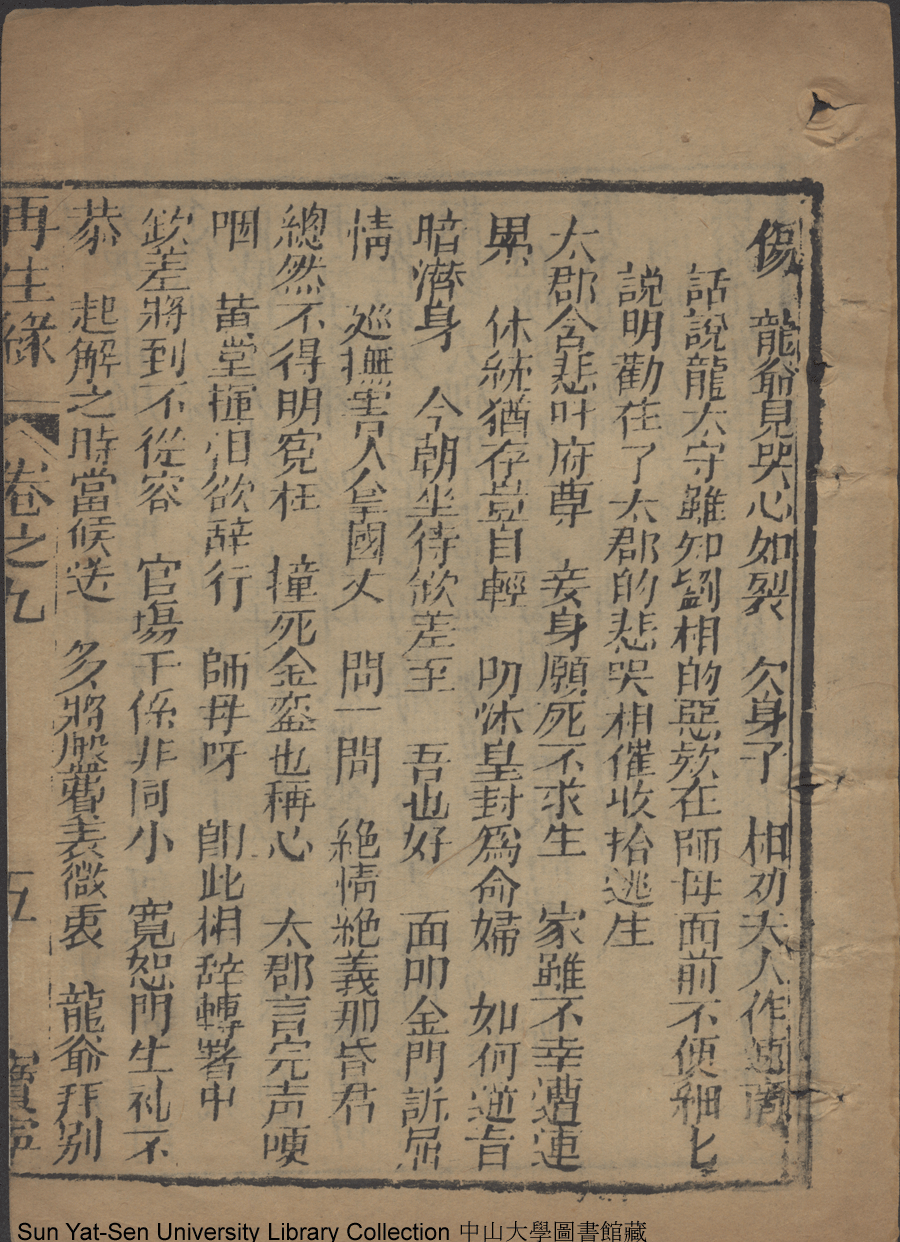 傷　龍爺見哭心如裂　欠身子　相劝夫人作速商
話說龍太守雖知劉相的惡欵在師母面前不便細匕
說明勸住了太郡的悲哭相催收拾逃生
太郡含悲叶府尊　妾身願死不求生　家雖不幸遭連
累　休統猶存豈自輕　叨沐皇封爲命婦　如何逆旨
暗潛身　今朝坐待欽差至　吾也好　面叩金門訴屈
情　巡撫害人皇國丈　問一問　絕情絕義那昏君
總然不得明寃枉　撞死金鑾也稱心　太郡言完声哽
咽　黃堂揮泪欲辞行　師母呀　卽此相辞轉署中
欽差將到不從容　官塲干係非同小　寬恕門生礼不
恭　起解之時當候送　多將盤費表微衷　龍爺拜别
再生緣　卷之九　五　寶寧
Sun Yat-Sen University Library Collection 中山大學圖書館藏